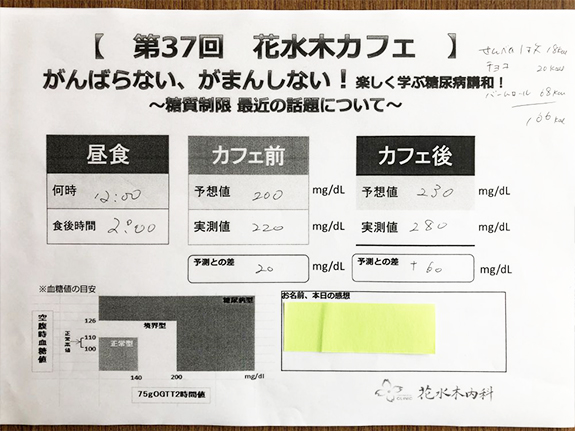 【 第37回 花水木カフェ 】
がんばらない、がまんしない！楽しく学ぶ糖尿病講和！
～糖質制限 最近の話題について～
せんべい1枚 18kcal
チョコ 20kcal
68kcal
106kcal
昼食
何時 12:00
食後時間 2:00
カフェ前
予想値 200 mg/dL
実測値 220 mg/dL
予測との差 20 mg/dL
カフェ後
予想値 230 mg/dL
実測値 280 mg/dL
予測との差 +60 mg/dL
※血糖値の目安
空腹時血糖値
正常高値
126
110
100
糖尿病型
境界型
正常型
140 200 mg/dl
75gOGTT2時間値
お名前、本日の感想
花水木内科